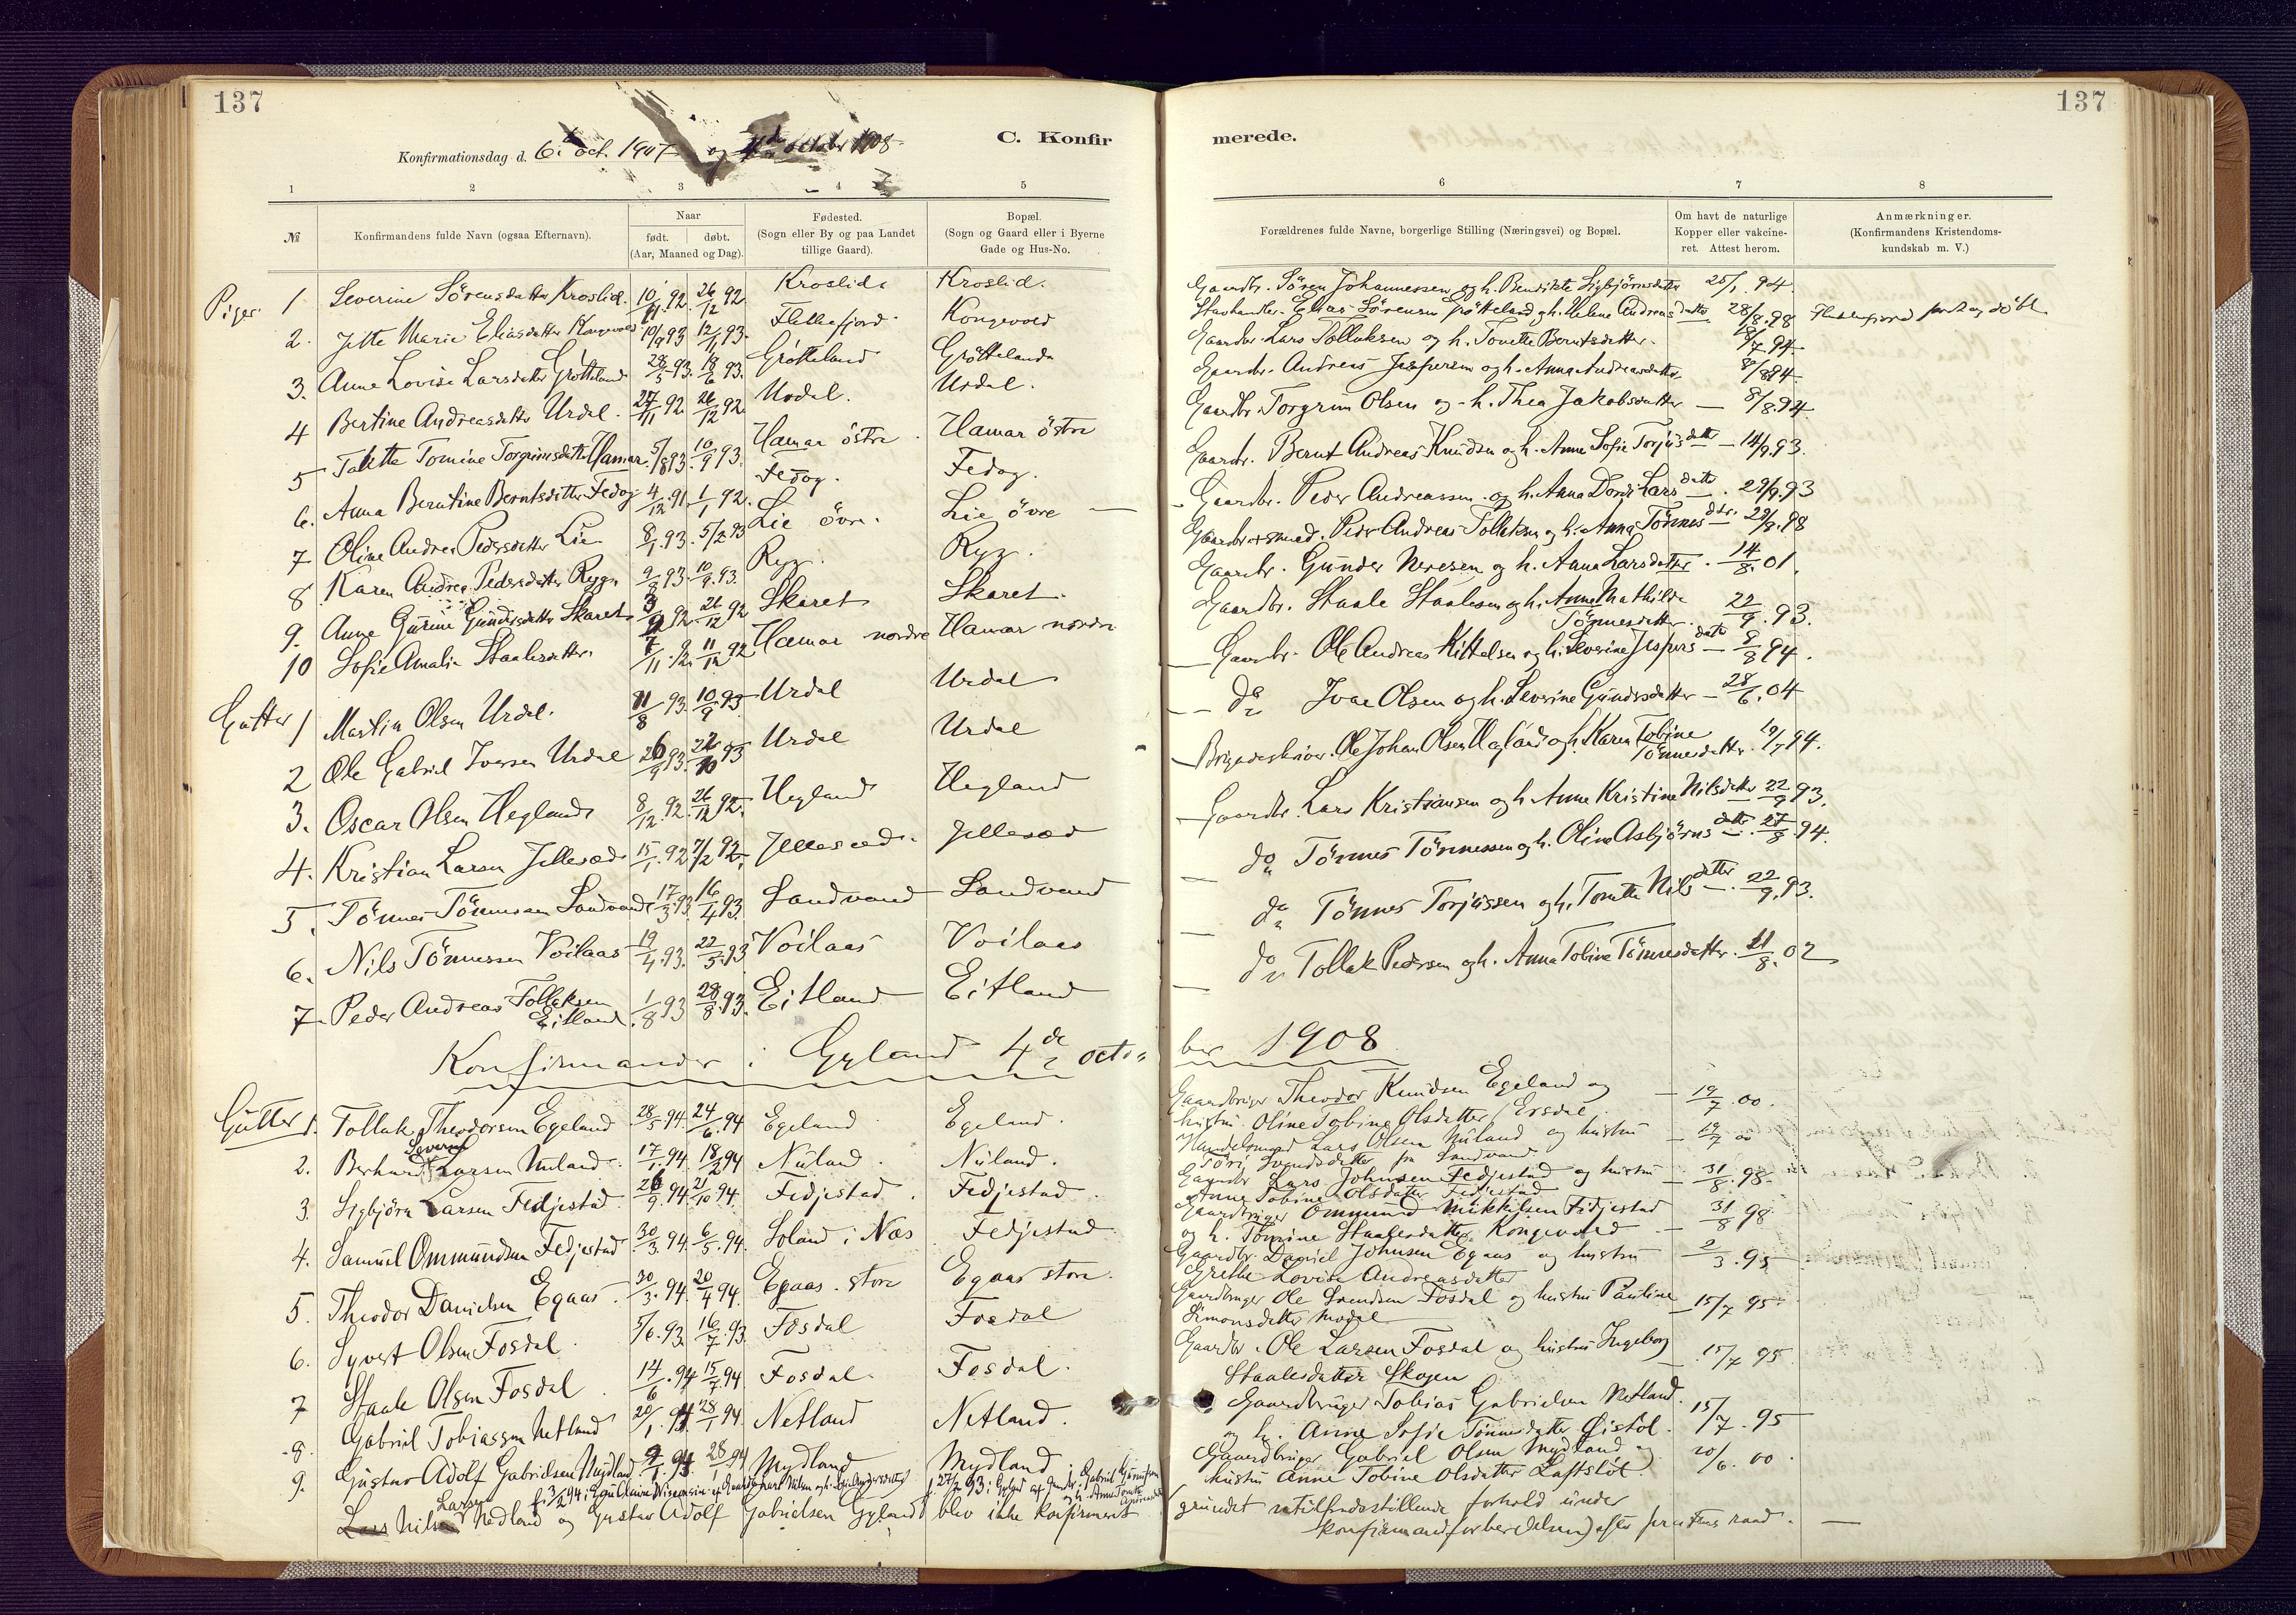 137
137
Konfirmationsdag d. 6. oct. 1907 og october 1908.
C. Konfir merede.
1 2 3 4 5 6 7 8
№ Konfirmandens fulde Navn (ogsaa Efternavn). Naar født. døbt. (Aar, Maaned og Dag). Fødested. (Sogn eller By og paa Landet tillige Gaard). Bopæl. (Sogn og Gaard eller i Byerne Gade og Hus-No. Forældrenes fulde Navne, borgerlige Stilling (Næringsvei) og Bopæl. Om havt de naturlige Kopper eller vakcineret. Attest herom. Anmærkninger. (Konfirmandens Kristendomskundskab m. V.)
Piger 1 Severine Sörensdatter Kroslid. 10/11 92 26/12 92 Kroslid Kroslid. Gaardbr. Sören Johannessen og h. Bendikte Sigbjörnsdatter 25/1 94
2. Jette Marie Eliasdatter Kongevold 10/9 93 12/1 93. Flekkefjord. Kongevold Elias Sörensen Grötteland og h. Helene Andreasdatter 28/8.98 Flekkefjord født og döbt
3. Anne Lovise Larsdatter Grötteland 28/5 93. 18/6 93. Grötteland Grötteland Gaardbr. Lars Tolluksen og h. Tonette Berntsdatter. 18/7 94
4 Bertine Andreasdatter Urdal. 27/11 92 26/12 92 Urdal. Urdal. Gaardbr. Andreas Jespersen og h. Anna Andreasdatter 8/8 94
5 Talette Tomine Torgrimsdatter Hamar. 5/8 93. 10/9 93. Hamar östre Hamar östre Gaardbr. Torgrim Olsen og h. Thea Jakobsdatter — 8/8.94
6. Anna Berntine Berntsdatter Fedog 4/12 91. 1/1 92. Fedog. Fedog. Gaardbr. Bernt Andreas Knudsen og h. Anne Sofie Torjusdatter — 14/9.93.
7 Oline Andrea Pedersdatter Lie 8/1.93. 5/2 93 Lie övre. Lie övre Gaardbr. Peder Andreassen og h. Anna Dordi Larsdatter. 29/9.93
8 Karen Andrea Pedersdatter Ryg 9/8 93. 10/9.93. Ryg. Ryg. Gaardbr + smed. Peder Andreas Tollaksen og h. Anna Tönnesdtr. 29/9.98
9. Anne Gurine Gundersdatter Skaret 3/9 92 26/12 92 Skaret Skaret. Gaardbr. Gunder Neresen og h. Anna Larsdatter. 14/8.01.
10 Sofie Amalie Staalesdatter. 7/11.92. 11/12 92 Hamar nordre Hamar nordre Gaardbr. Staale Staalesen og h. Anne Mathilde Tönnesdatter. 22/9.93.
Gutter 1 Martin Olsen Urdal. 11/8 93. 10/9 93 Urdal Urdal Gaardbr. Ole Andreas Kittelsen og h. Severine Jespersdatter 8/8 94.
2 Ole Gabriel Iversen Urdal 26/9 93. 22/10 93 Urdal Urdal do Ivar Olsen og h. Severine Gundersdatter — 28/6.04
3. Oscar Olsen Hegland 8/12.92. 26/12 92. Hegland Hegland Brigadeskriver. Ole Johan Olsen Hegland og h. Karen Tobine Tönnesdatter. 10/7 94.
4. Kristian Larsen Jellesæd 15/1.92 7/2 92. Jellesæd. Jellesæd Gaardbr. Lars Kristiansen og h Anne Kristine Nilsdatter 22/9 93.
5. Tönnes Tönnessen Sandvand 17/3.93. 16/4 93. Sandvand Sandvand do Tönnes Tönnessen og h. Oline Asbjörnsdatter. 27/8.94.
6. Nils Tönnessen Voilaas 19/4.93. 22/5.93 Voilaas Voilaas do Tönnes Torjussen og h. Tonette Nilsdatter. 22/9.93.
7. Peder Andreas Tollaksen Eitland. 1/8 93 28/8.93. Eitland Eitland do Tollak Pedersen og h. Anna Tobine Tönnesdatter. 11/8.02
Konfirmander i Gyland 4de october 1908
Gutter 1. Tollak Theodorsen Egeland 28/5 94. 24/6.94 Egeland. Egeland. Gaardbruger Theodor Knudsen Egeland og hustru Oline Tobine Olsdatter Ersdal. 19/7.00.
2. Berhard Severin Larsen Nuland. 17/1.94. 18/2 94 Nuland. Nuland. Handelsmand Lars Olsen Nuland og hustru Töri Svendsdatter fra Sandvand 19/7 00
3. Sigbjörn Larsen Fedjestad 26/9.94. 21/10 94. Fedjestad. Fedjestad. Gaardbr Lars Johnsen Fedjestad og hustru Anne Tobine Olsdatter Fedjestad 31/8.98.
4. Samuel Ommundsen Fedjestad 30/3.94. 6/5.94. Soland i Næs Fedjestad. Gaardbruger Ommund Mikkilsen Fedjestad og h. Tomine Staalesdatter Kongevold 31/8 98
5. Theodor Danielsen Egaas. 30/3.94. 20/4 94. Egaas. store Egaas store. Gaardbr. Daniel Johnsen Egaas og hustru Grethe Lovise Andreasdatter 2/3.95
6. Syvert Olsen Fosdal. 5/6.93. 16/7.93. Fosdal Fosdal Gaardbruger Ole Svendsen Fosdal og hustru Pauline Simonsdatter Modal 15/7 95.
7 Staale Olsen Fosdal. 14/6.94 15/7 94. Fosdal. Fosdal. Gaardbr. Ole Larsen Fosdal og hustru Ingeborg Staalesdatter Skogen 15/7 95
8. Gabriel Tobiassen Netland 20/1.94. 28/1 94. Netland Netland. Gaardbruger Tobias Gabrielsen Netland. og h. Anne Sofie Tönnesdatter Östöl. 15/7.95
9. Gustav Adolf Gabrielsen Mydland 9/1.94. 28/1 94 Mydland Mydland Gaardbruger Gabriel Olsen Mydland og hustru Anne Tobine Olsdatter Laftslöt. 20/6.00.
Larsen
Lars Nilsen Nedland og Gustav Adolf Gabrielsen Gyland blev ikke konfirmeret (grundet utilfredsstillende forhold under
konfirmandforberedelsen) efter raad. —